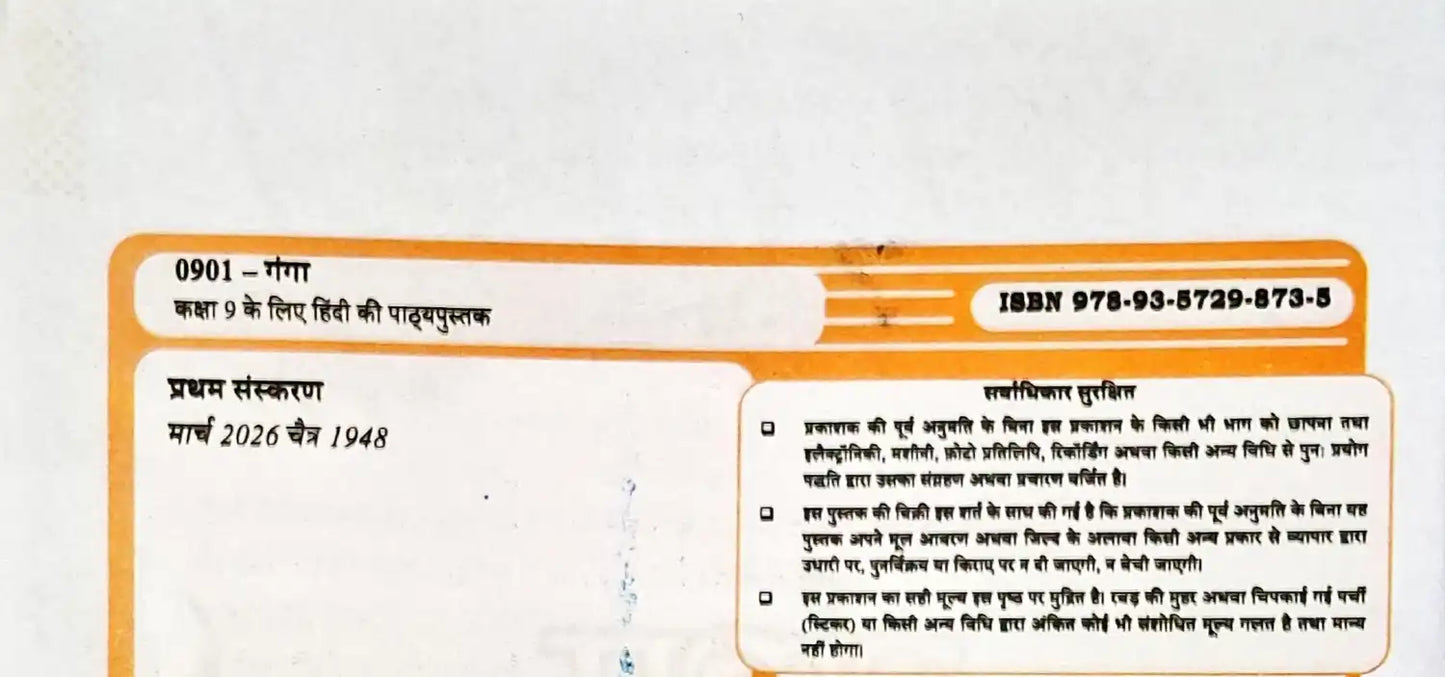 0901 – गंगा
कक्षा 9 के लिए हिंदी की पाठ्यपुस्तक
ISBN 978-93-5729-873-5
प्रथम संस्करण
मार्च 2026 चैत्र 1948
सर्वाधिकार सुरक्षित
❑ प्रकाशक की पूर्व अनुमति के बिना इस प्रकाशन के किसी भी भाग को छापना तथा
इलैक्ट्रॉनिकी, मशीनी, फ़ोटो प्रतिलिपि, रिकॉर्डिंग अथवा किसी अन्य विधि से पुनः प्रयोग
पद्धति द्वारा उसका संग्रहण अथवा प्रचारण वर्जित है।
❑ इस पुस्तक की बिक्री इस शर्त के साथ की गई है कि प्रकाशक की पूर्व अनुमति के बिना यह
पुस्तक अपने मूल आवरण अथवा जिल्द के अलावा किसी अन्य प्रकार से व्यापार द्वारा
उधारी पर, पुनर्विक्रय या किराए पर न दी जाएगी, न बेची जाएगी।
❑ इस प्रकाशन का सही मूल्य इस पृष्ठ पर मुद्रित है। रबड़ की मुहर अथवा चिपकाई गई पर्ची
(स्टिकर) या किसी अन्य विधि द्वारा अंकित कोई भी संशोधित मूल्य गलत है तथा मान्य
नहीं होगा।